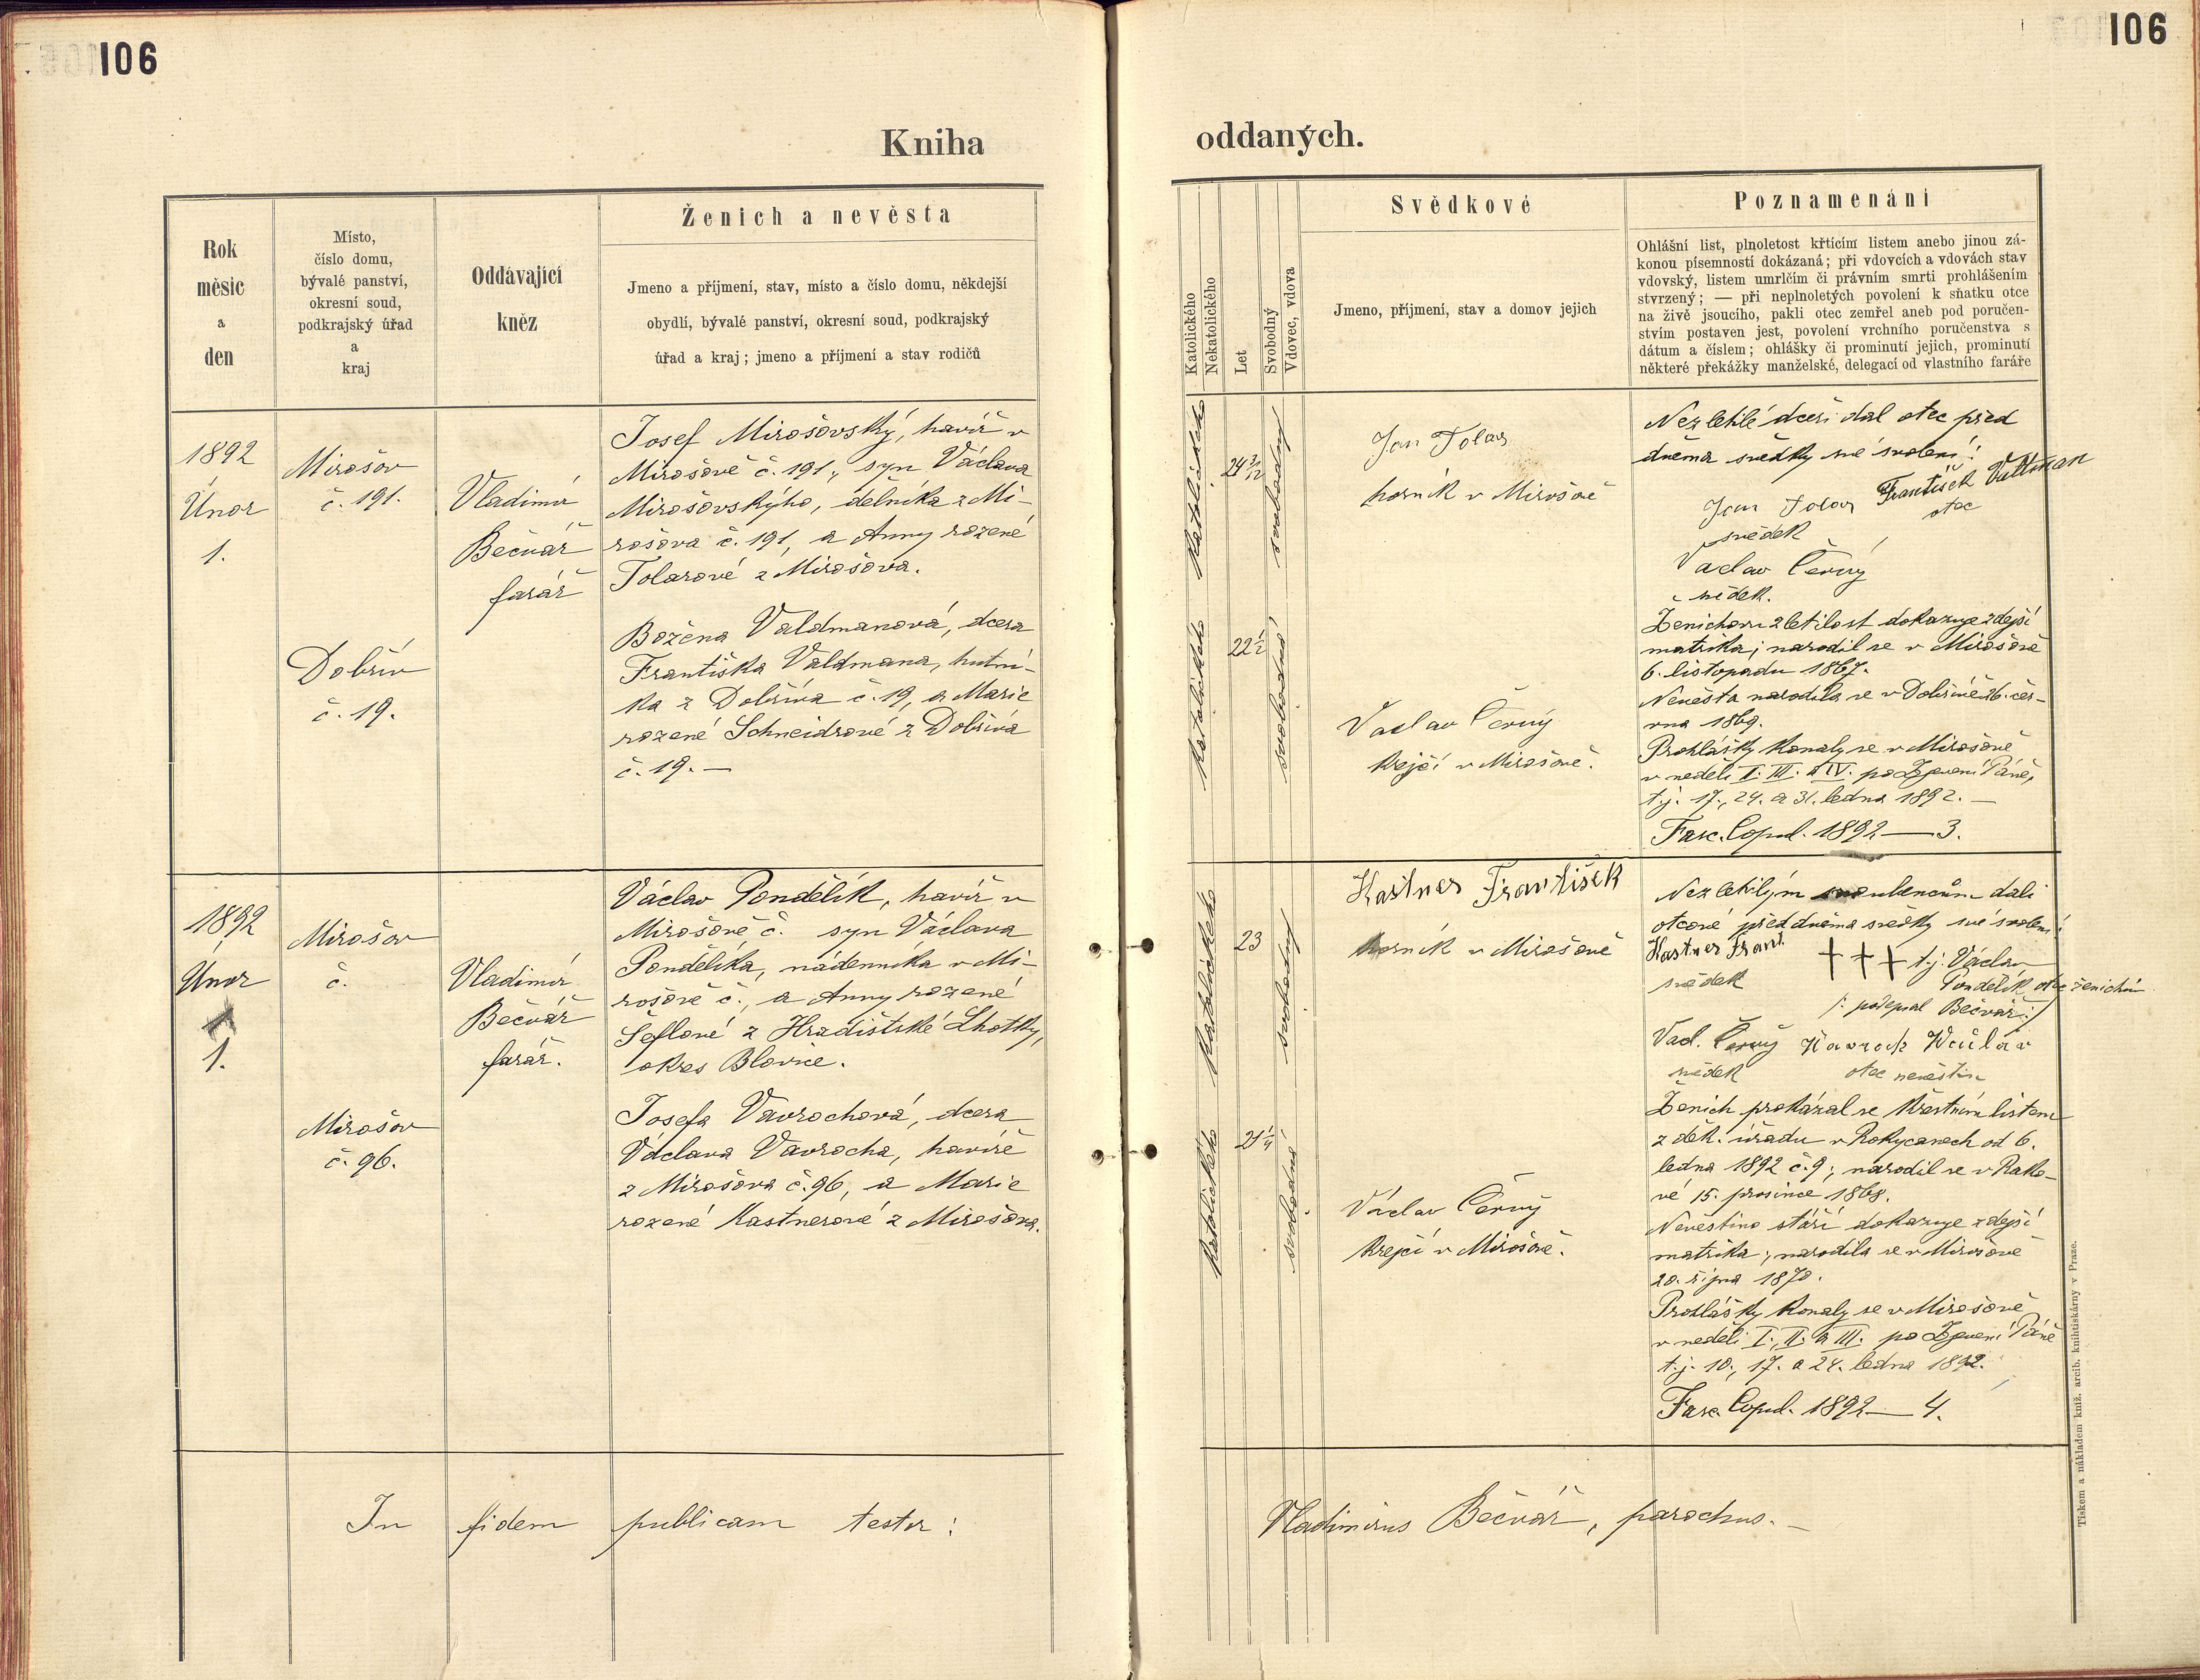 106
106
Kniha
oddaných.
Rok
měsíc
a
den
Místo,
číslo domu,
bývalé panství,
okresní soud,
podkrajský úřad
a
kraj
Oddávající
kněz
Ženich a nevěsta
Jmeno a příjmení, stav, místo a číslo domu, někdejší
obydlí, bývalé panství, okresní soud, podkrajský
úřad a kraj; jmeno a příjmení a stav rodičů
Katolického
Nekatolického
Let
Svobodný
Vdovec, vdova
Svědkové
Jmeno, příjmení, stav a domov jejich
Poznamenání
Ohlášní list, plnoletost křtícím listem anebo jinou zá-
konou písemností dokázaná; při vdovcích a vdovách stav
vdovský, listem umrlčím či právním smrti prohlášením
stvrzený; — při neplnoletých povolení k sňatku otce
na živě jsoucího, pakli otec zemřel aneb pod poručen-
stvím postaven jest, povolení vrchního poručenstva s
dátum a číslem; ohlášky či prominutí jejich, prominutí
některé překážky manželské, delegací od vlastního faráře
1892
Únor
1.
Mirošov
č. 191.
Dobřív
č. 19.
Vladimír
Bečvář
farář
Josef Mirošovský, havíř v
Mirošově č. 191, syn Václava
Mirošovskýho, dělníka z Mi-
rošova č. 191, a Anny rozené
Tolarové z Mirošova.
Božena Valdmanová, dcera
Františka Valdmana, hutní-
ka z Dobříva č. 19, a Marie
rozené Schneidrové z Dobříva
č. 19. —
katolického
24 3/12
svobodný
katolického
22 1/2
svobodná
Jan Tolar
horník v Mirošově
Vaclav Černý
krejčí v Mirošově.
Nezletilé dceři dal otec před
dvěma svědky své svolení:
František Valtman
otec
Jan Tolar
svědek
Vaclav Černý
svědek.
Ženichovu zletilost dokazuje zdejší
matrika; narodil se v Mirošově
6. listopadu 1867.
Nevěsta narodila se v Dobřívě 26. čer-
vna 1869.
Prohlášky konaly se v Mirošově
v neděli II. III. a IV. po Zjevení Páně,
t.j. 17., 24. a 31. ledna 1892. —
Fasc. Copul. 1892 — 3.
1892
Únor
1.
Mirošov
č.
Mirošov
č. 96.
Vladimír
Bečvář
farář.
Václav Pondělík, havíř v
Mirošově č. syn Václava
Pondělíka, nádenníka v Mi-
rošově č., a Anny rozené
Šeflové z Hradišťské Lhotky,
okres Blovice.
Josefa Vavrochová, dcera
Václava Vavrocha, havíře
z Mirošova č. 96, a Marie
rozené Kastnerové z Mirošova.
katolického
23
svobodný
katolického
21 1/4
svobodná
Kastner František
horník v Mirošově
Václav Černý
krejčí v Mirošově.
Nezletilým snoubencům dali
otcové před dvěma svědky své svolení:
Kastner Frant.
svědek
+ + + t.j. Václav
Pondělík otec ženichův
/: podepsal Bečvář :/
Vacl. Černý
svědek
Vavroch Wáclav
otec nevěstin
Ženich prokázal se křestním listem
z děk. úřadu v Rokycanech od 6.
ledna 1892 č. 9; narodil se v Rako-
vé 15. prosince 1868.
Nevěstino stáří dokazuje zdejší
matrika; narodila se v Mirošově
20. října 1870.
Prohlášky konaly se v Mirošově
v neděli I., II. a III. po Zjevení Páně
t.j. 10., 17. a 24. ledna 1892.
Fasc. Copul. 1892 — 4.
In fidem publicam testor:
Vladimirus Bečvář, parochus. —
Tiskem a nákladem kníž. arcib. knihtiskárny v Praze.